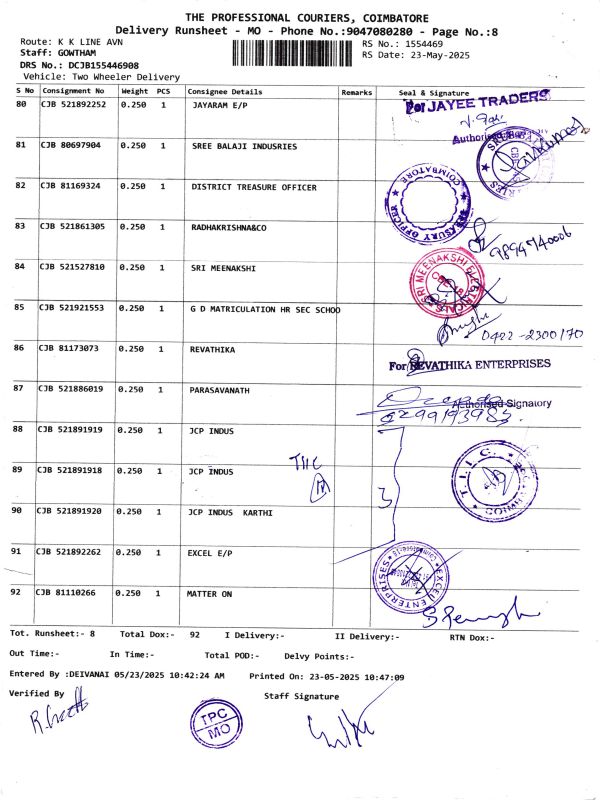 THE PROFESSIONAL COURIERS, COIMBATORE
Delivery Runsheet - MO - Phone No.:9047080280 - Page No.:8
Route: K K LINE AVN
RS No.: 1554469
Staff: GOWTHAM
RS Date: 23-May-2025
DRS No.: DCJB155446908
Vehicle: Two Wheeler Delivery
S No Consignment No Weight PCS Consignee Details Remarks Seal & Signature
80 CJB 521892252 0.250 1 JAYARAM E/P
For JAYEE TRADERS
81 CJB 80697904 0.250 1 SREE BALAJI INDUSRIES
82 CJB 81169324 0.250 1 DISTRICT TREASURE OFFICER
COIMBATORE
83 CJB 521861305 0.250 1 RADHAKRISHNA&CO
84 CJB 521527810 0.250 1 SRI MEENAKSHI
SRI MEENAKSHI ELECTRICALS
85 CJB 521921553 0.250 1 G D MATRICULATION HR SEC SCHOO
0422-2300170
86 CJB 81173073 0.250 1 REVATHIKA
For REVATHIKA ENTERPRISES
87 CJB 521886019 0.250 1 PARASAVANATH
Authorised Signatory
88 CJB 521891919 0.250 1 JCP INDUS
89 CJB 521891918 0.250 1 JCP INDUS
T.I.I.C.
90 CJB 521891920 0.250 1 JCP INDUS KARTHI
91 CJB 521892262 0.250 1 EXCEL E/P
EXCEL ENTERPRISES
92 CJB 81110266 0.250 1 MATTER ON
Tot. Runsheet:- 8 Total Dox:- 92 I Delivery:- II Delivery:- RTN Dox:-
Out Time:- In Time:- Total POD:- Delvy Points:-
Entered By :DEIVANAI 05/23/2025 10:42:24 AM Printed On: 23-05-2025 10:47:09
Verified By Staff Signature
TPC
MO